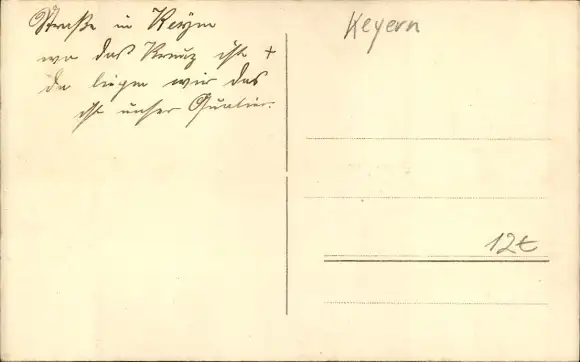 Straße in Keyem
wo das Kreuz ist +
da liegen wir das
ist unser Quatier.
Keyern
12€